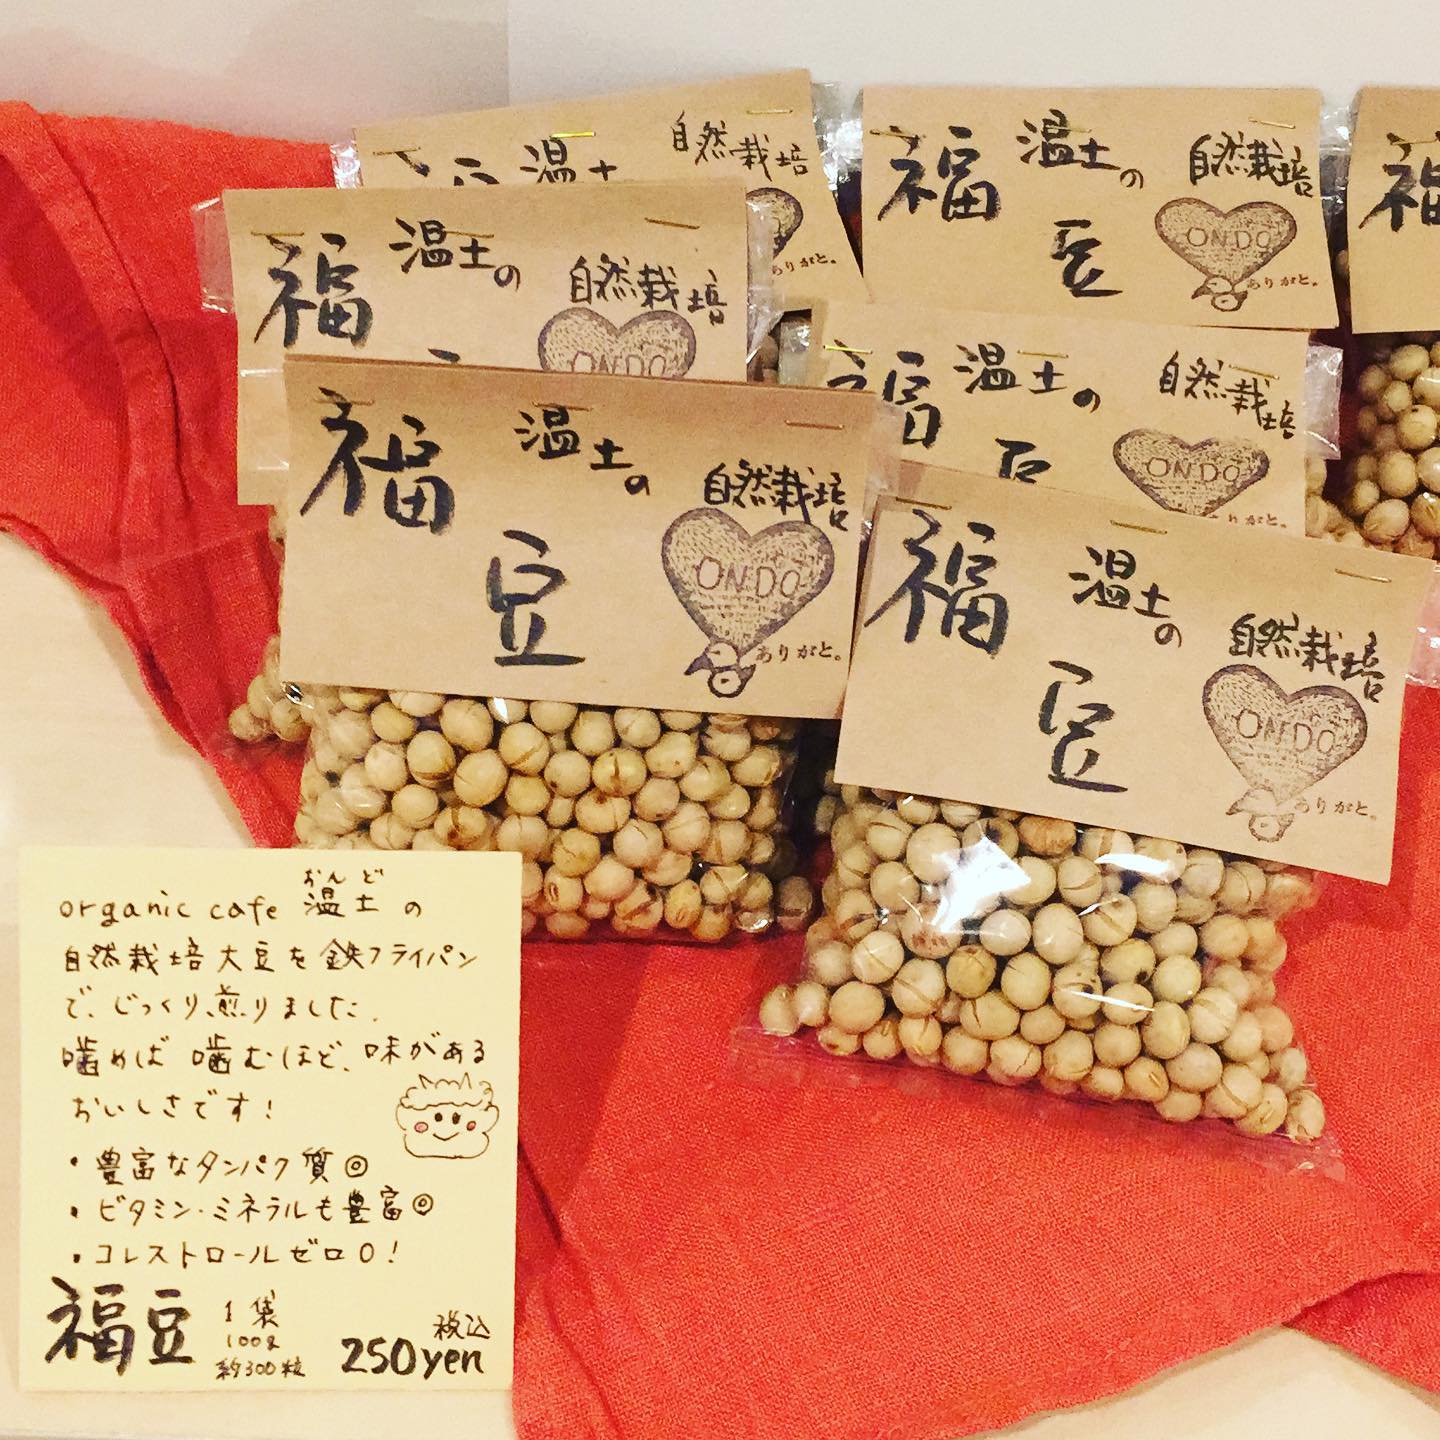 自然栽培
温土
豆
ありがと。
福
温土の
自然栽培
豆
ONDO
ありがと。
福
福
温土の
自然栽培
ONDO
福
温土の
自然栽培
豆
ONDO
ありがと。
福
温土の
自然栽培
豆
ONDO
ありがと。
福
温土の
自然栽培
豆
ONDO
ありがと。
おんど
organic cafe 温土の
自然栽培大豆を鉄フライパン
で、じっくり、煎りました。
噛めば噛むほど、味がある
おいしさです!
・豊富なタンパク質◎
・ビタミン・ミネラルも豊富◎
・コレストロールゼロ0!
福豆
1袋
100g
約300粒
税込
250yen